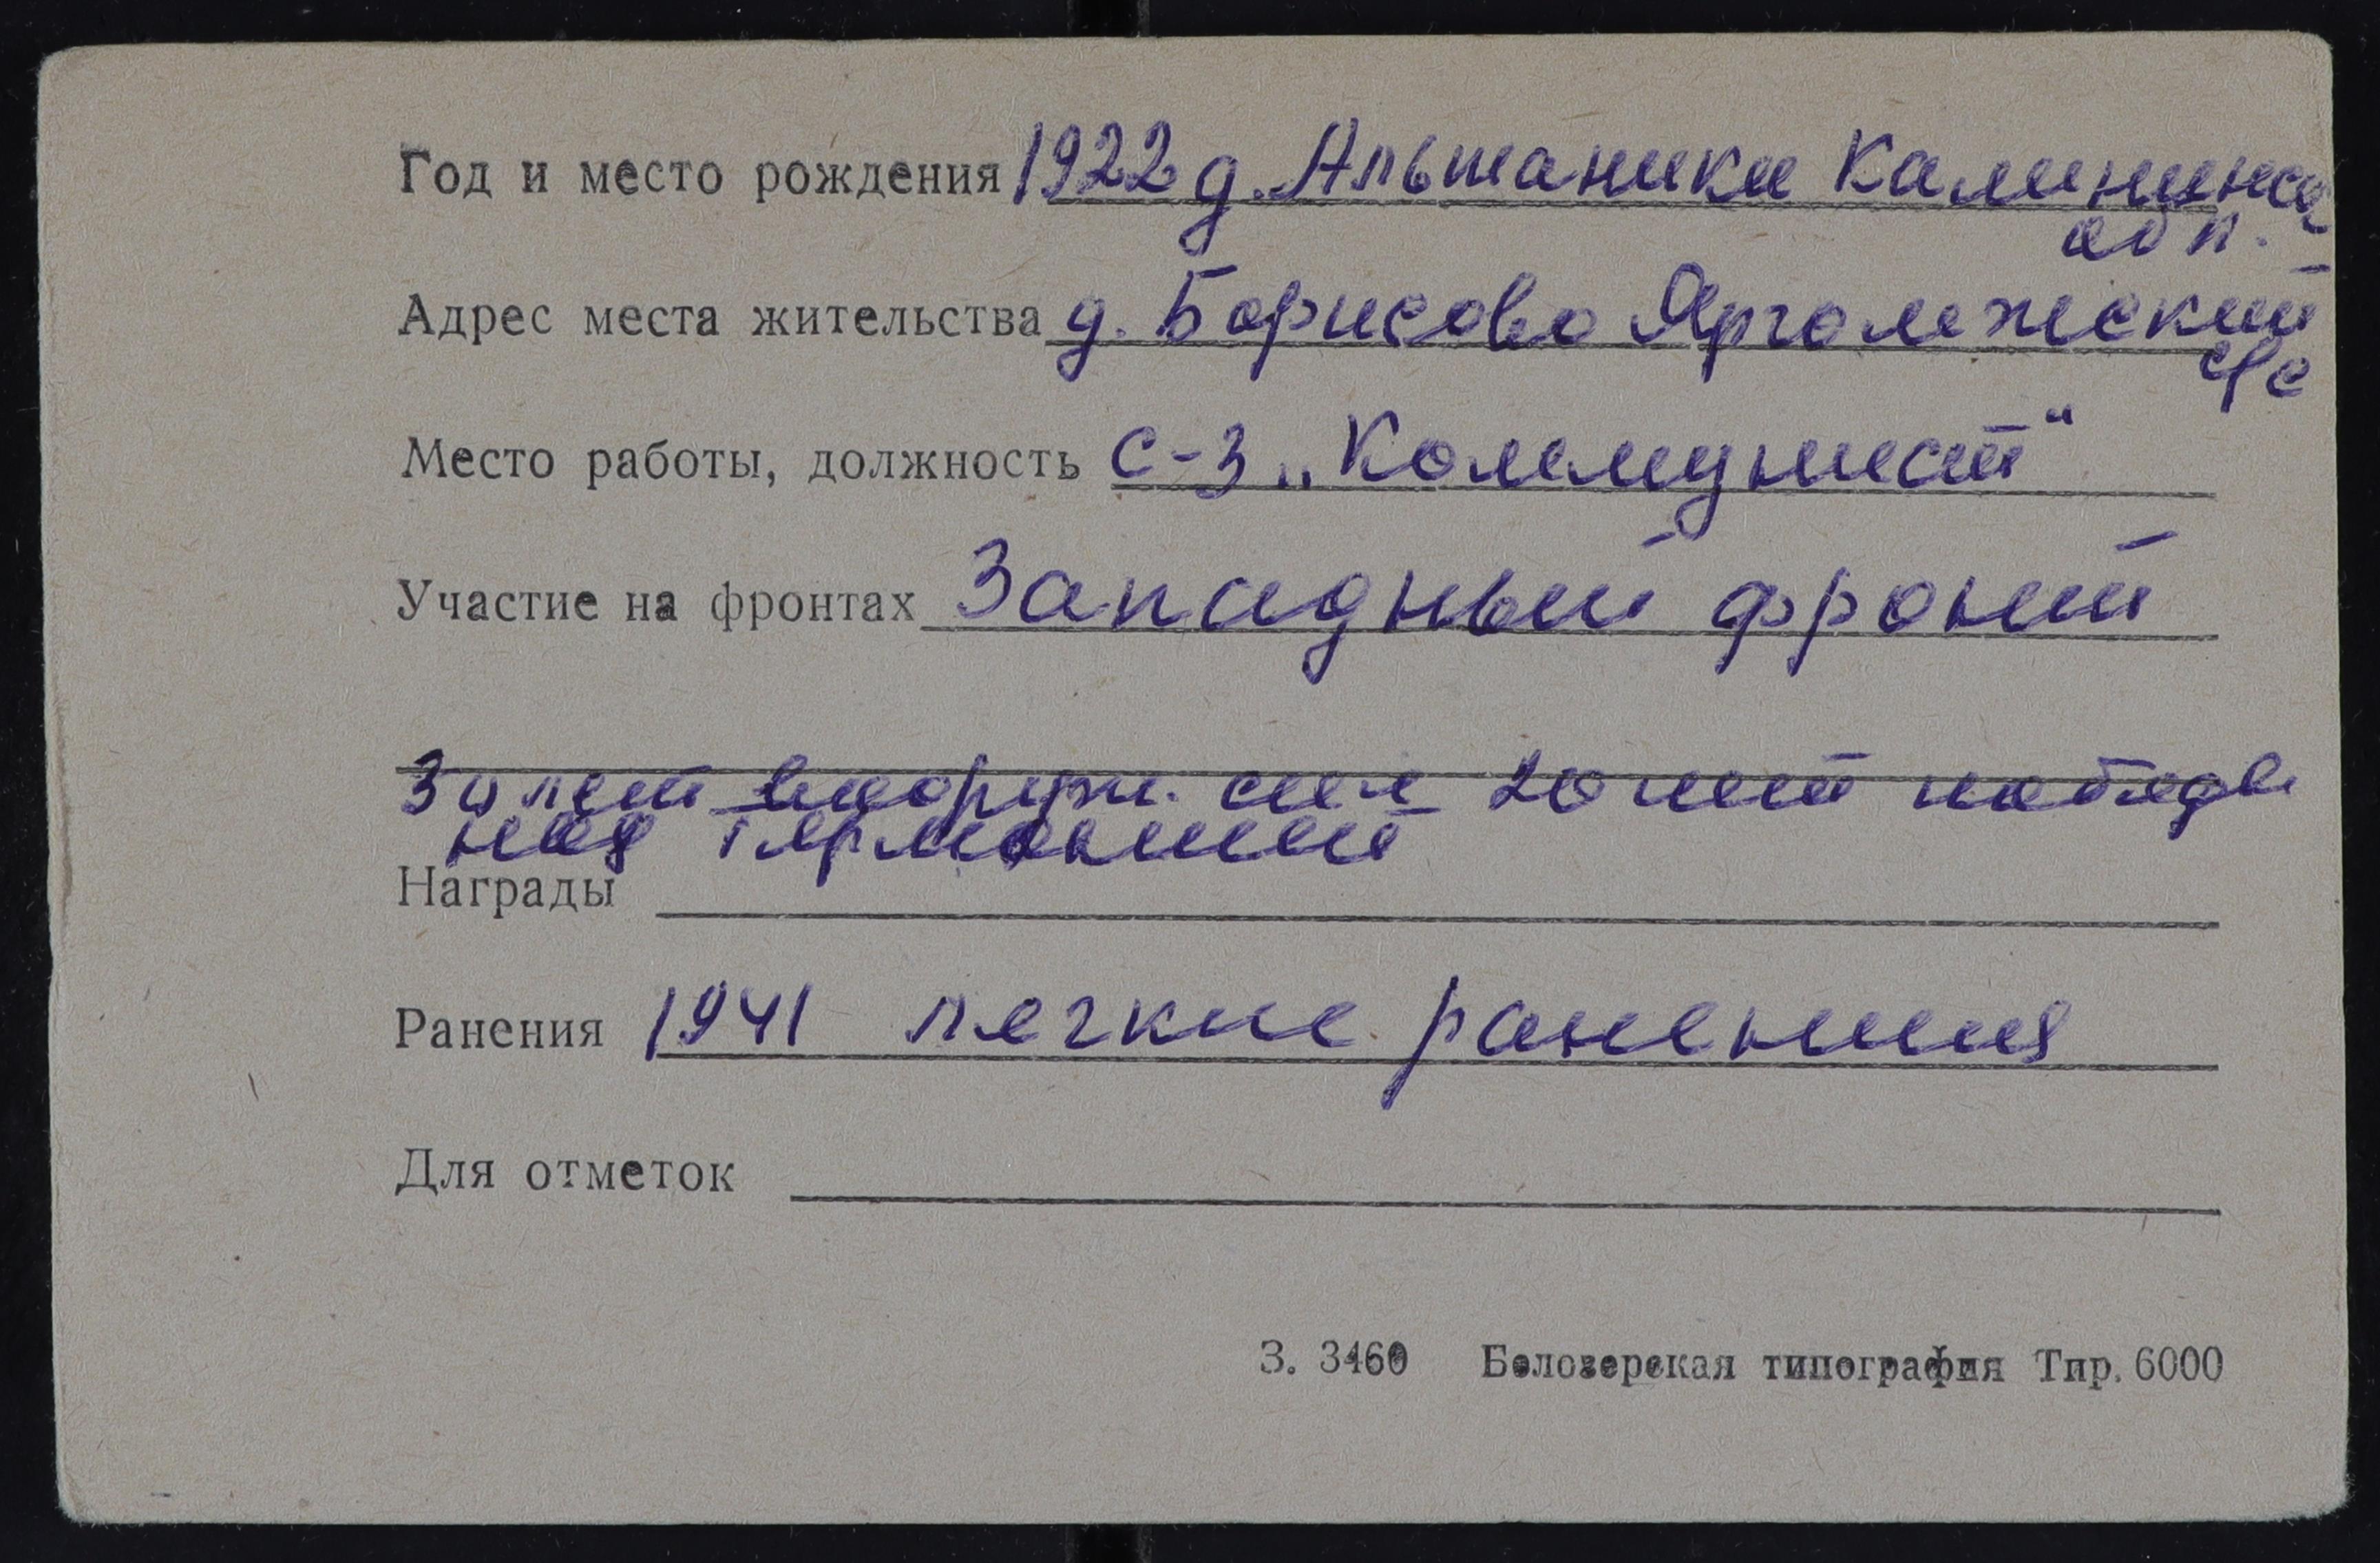 Год и место рождения 1922 д. Альшаники Калининск
обл.
Адрес места жительства д. Борисово Ярголомжский
с/с
Место работы, должность с-з „Коммунист“
Участие на фронтах Западный фронт
30 лет вооруж. сил 20 лет победы
над Германией
Награды
Ранения 1941 легкие ранения
Для отметок
З. 3460 Белозерская типография Тир. 6000